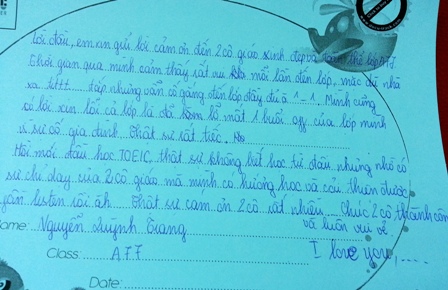 Lời đầu, em xin gửi lời cảm ơn đến 2 cô giáo xinh đẹp và toàn thể lớp A77
Thời gian qua mình cảm thấy rất vui mỗi lần đến lớp, mặc dù nhà
xa títtt .... tắp nhưng vẫn cố gắng đến lớp đầy đủ ^-^. Mình cũng
có lời xin lỗi cả lớp là đã làm lỡ mất 1 buổi off của lớp mình
vì sự cố gia đình. Thật sự rất tiếc.
Hồi mới đầu học TOEIC, thật sự không biết học từ đâu nhưng nhờ có
sự chỉ dạy của 2 cô giáo mà mình có hướng học và cải thiện được
phần listen tồi ách Thật sự cảm ơn 2 cô rất nhiều .... Chúc 2 cô thành công
và luôn vui vẻ
Name: Nguyễn Huỳnh Trang
Class: A77 I love you, ....
Date: